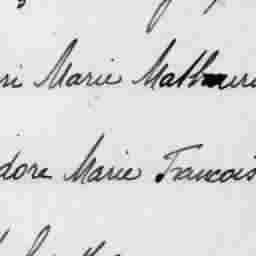 ri Marie Mathuri
dore Marie Francois